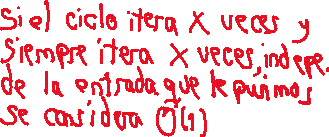 Si el ciclo itera X veces y
siempre itera X veces, indepe.
de la entrada que le pusimos
se considera O(1)